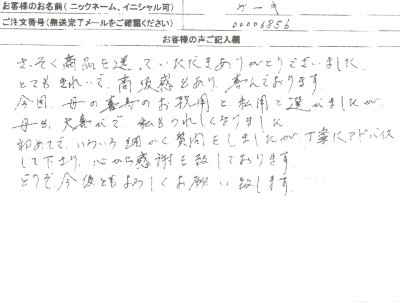 お客様のお名前(ニックネーム、イニシャル可) ケーキ
ご注文番号(発送完了メールをご確認ください) 00006856
お客様の声ご記入欄
さっそく商品を送っていただきありがとうございました。
とてもきれいで、高級感もあり、喜んでおります
今回、母の喜寿のお祝用と私用と選びましたが、
母も、大喜びで 私もうれしくなりました
初めてで、いろいろ細かく質問をしましたが、丁寧にアドバイス
して下さり、心から感謝を致しております
どうぞ今後ともよろしくお願い致します。